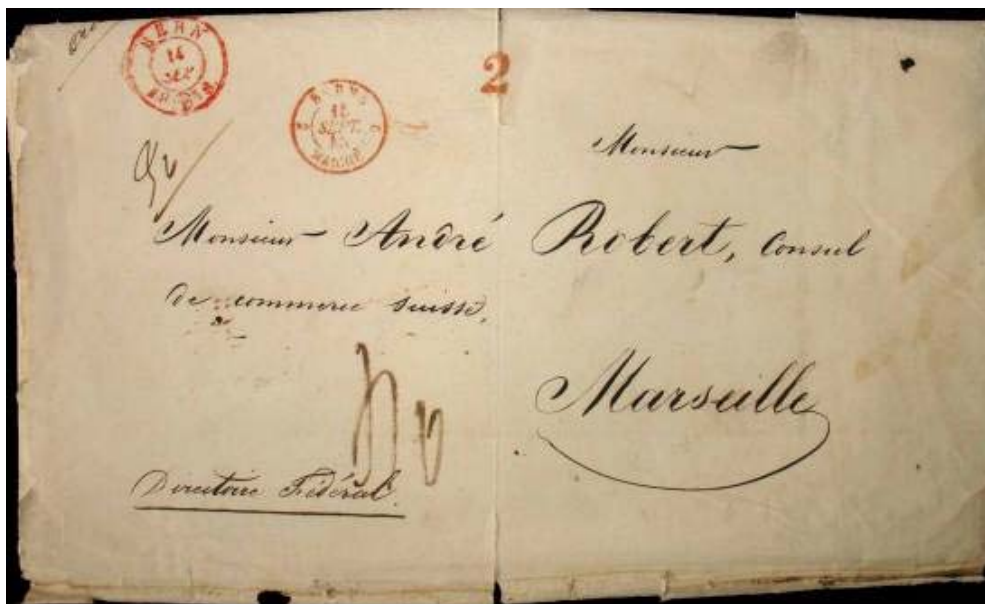 BERN
14
2
Monsieur
Monsieur André Robert, Consul
de commerce suisse,
Marseille
Directoire Fédéral.